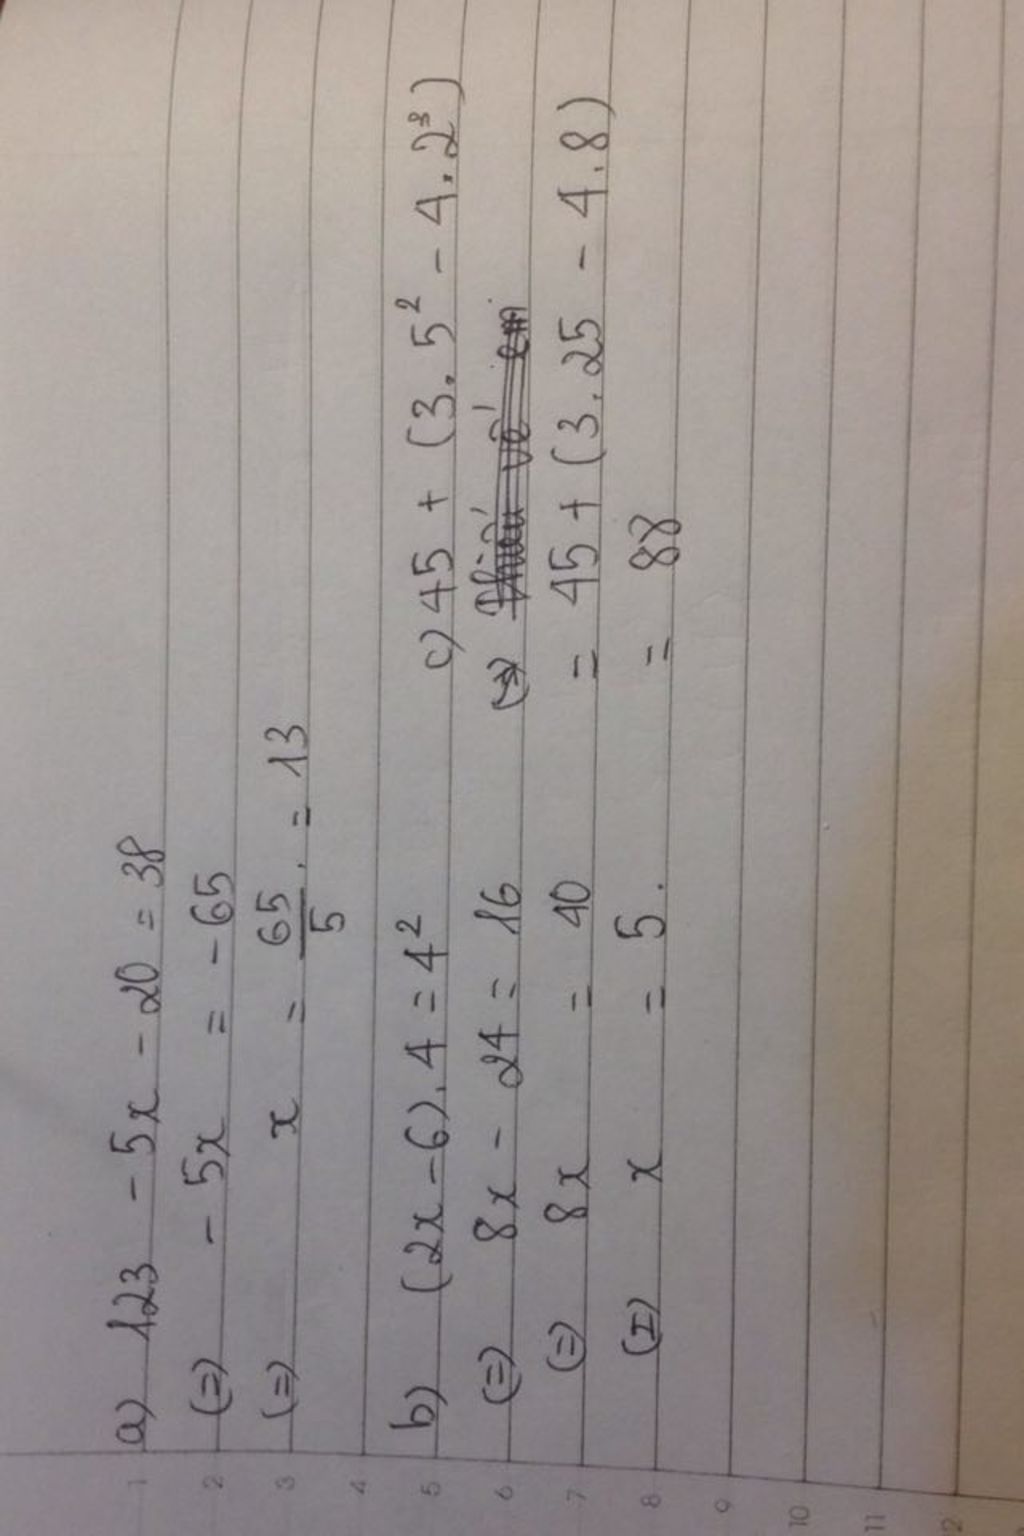 a) 123 - 5x - 20 = 38
(=) - 5x = - 65
(=) x = 65/5 . = 13
b) (2x - 6) . 4 = 4²
(=) 8x - 24 = 16
(=) 8x = 40
(=) x = 5.
c) 45 + (3. 5² - 4. 2³)
(=) thiếu vế em
= 45 + (3. 25 - 4. 8)
= 88
1
2
3
4
5
6
7
8
9
10
11